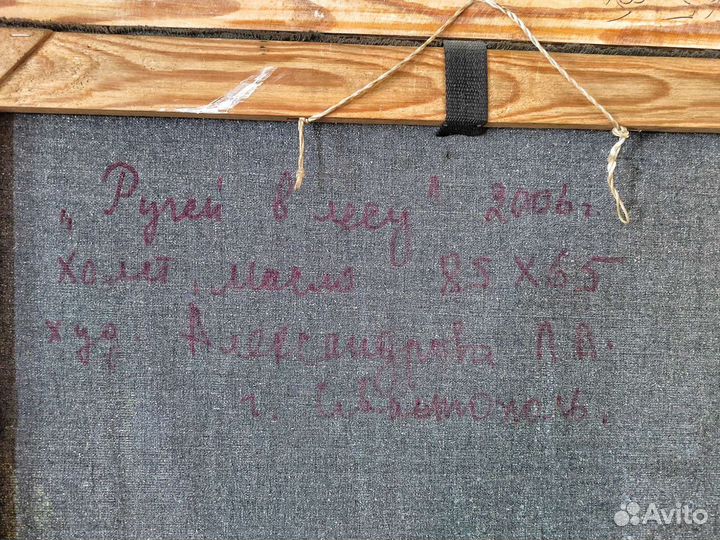 „Ручей в лесу" 2006 г.
холст, масло 85 х 65
худ. Александрова А.А.
г. Севастополь.
Avito